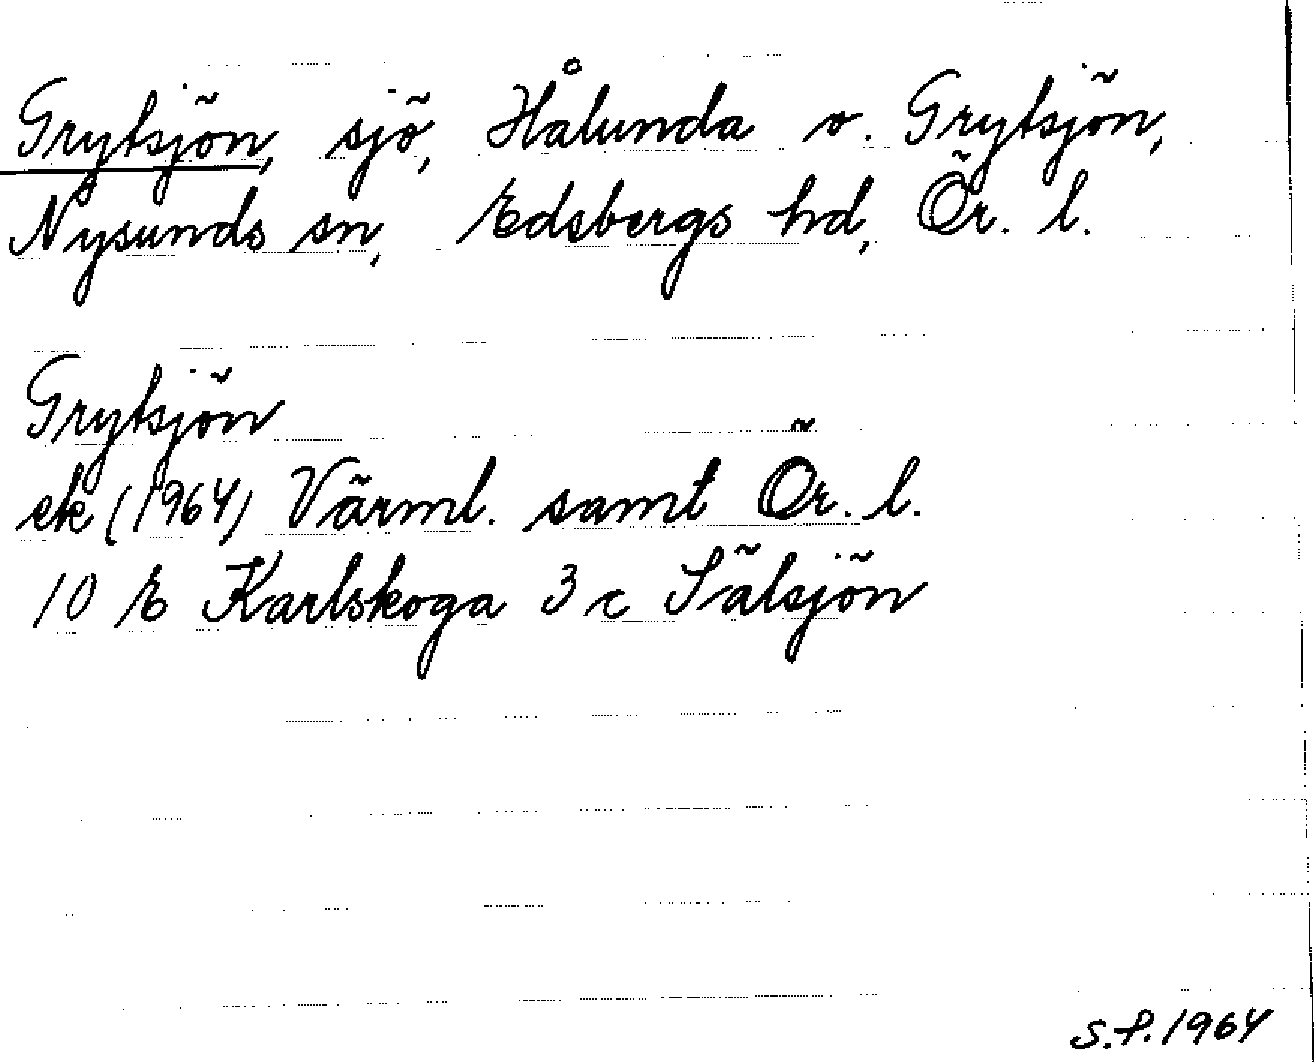 Grytsjön, sjö, Hålunda o. Grytsjön,
Nysunds sn, Edsbergs hd, Ör. l.
Grytsjön
ek (1964) Värml. samt Ör. l.
10 E Karlskoga 3 c Sälsjön
S.F. 1964